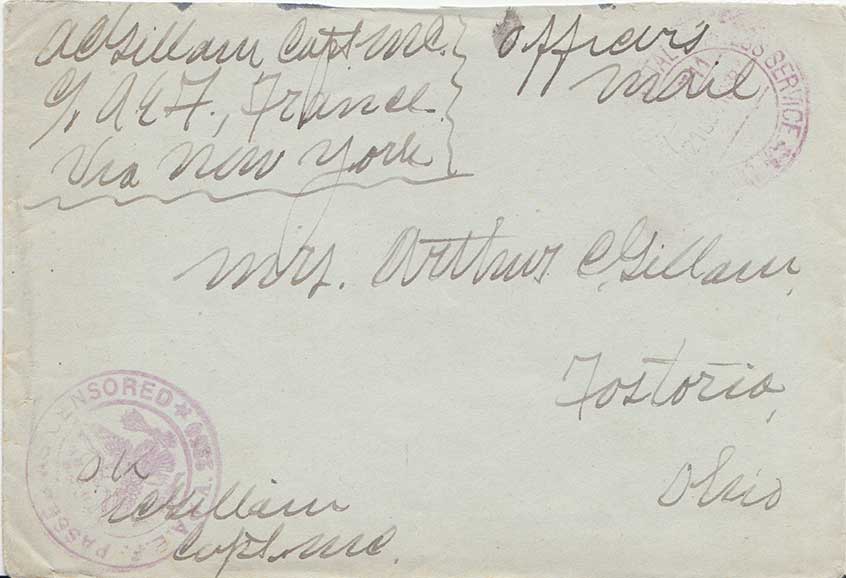 A C Gillam Capt M.C.
c/o A E F., France
Via New York
Officers
Mail
SERVICE
Mrs. Arthur C, Gillam,
Fostoria,
Ohio
PASSED AS CENSORED
A.E.F.
OK
ACGillam
Capt. M.C.